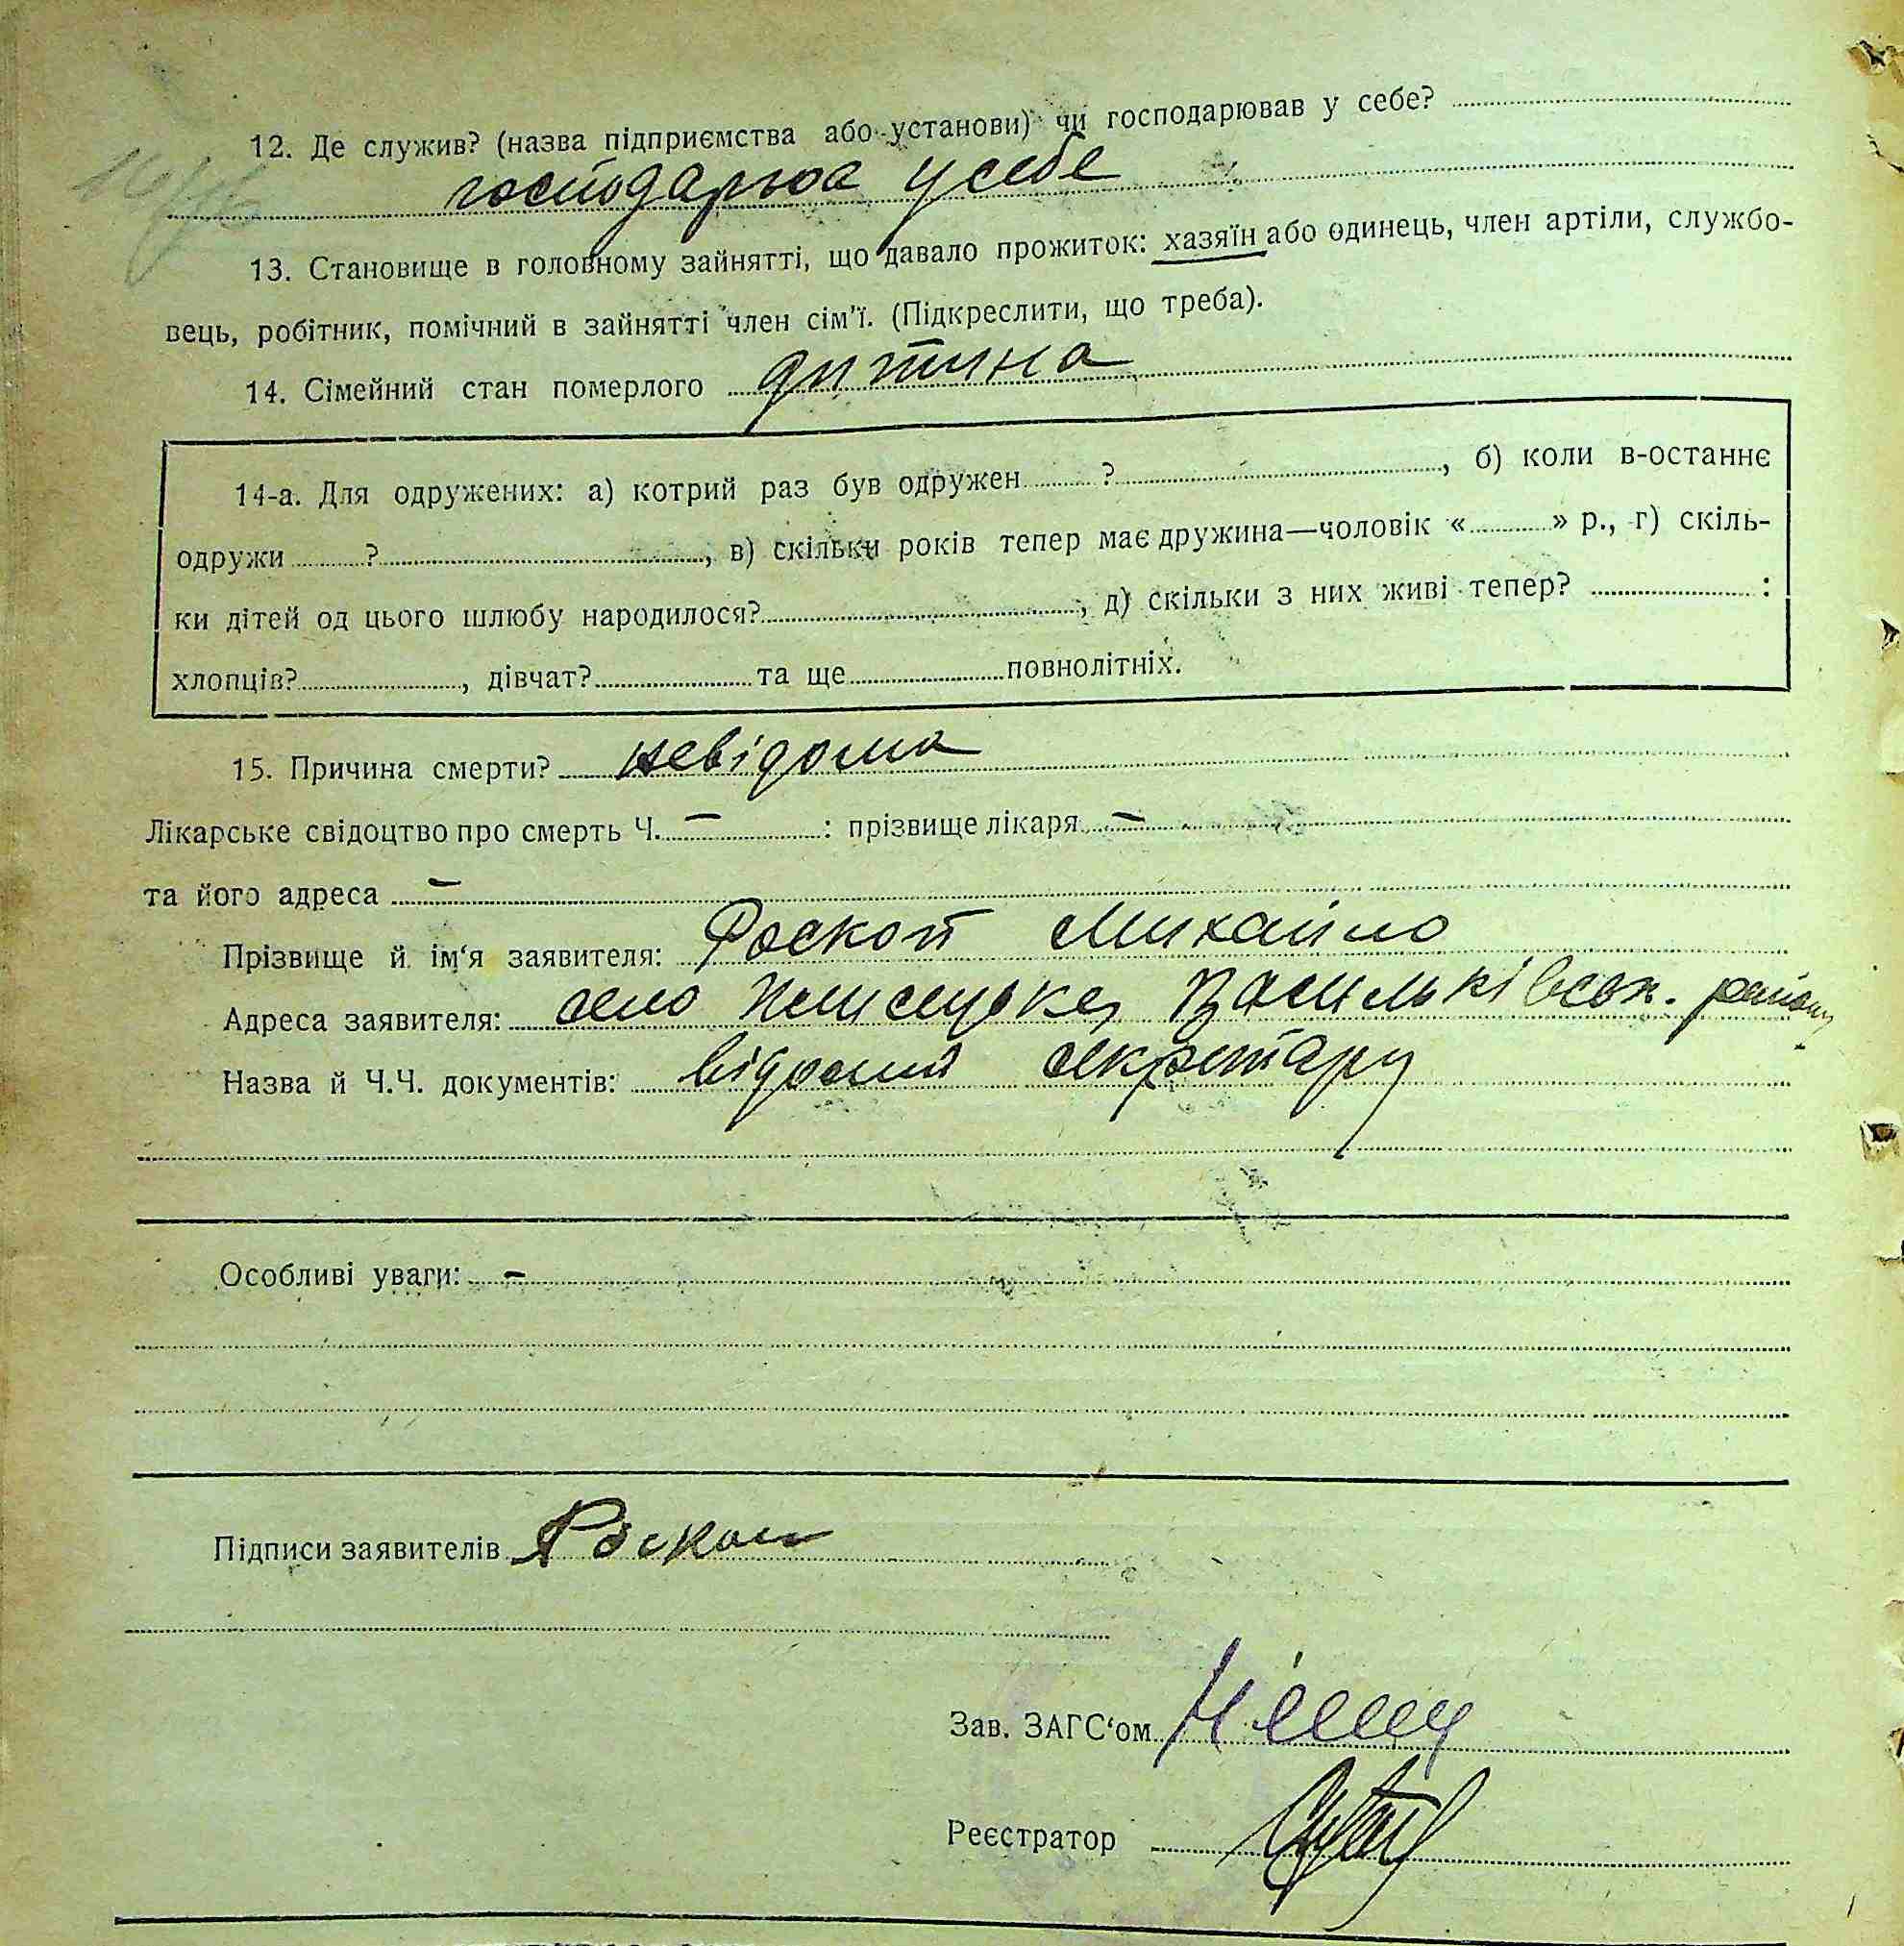 12. Де служив? (назва підприємства або установи) чи господарював у себе?
господарює у себе
13. Становище в головному зайнятті, що давало прожиток: хазяїн або одинець, член артіли, службо-
вець, робітник, помічний в зайнятті член сім'ї. (Підкреслити, що треба).
14. Сімейний стан померлого дитина
14-а. Для одружених: а) котрий раз був одружен ? , б) коли в-останнє
одружи ? , в) скільки років тепер має дружина—чоловік « » р., г) скіль-
ки дітей од цього шлюбу народилося? , д) скільки з них живі тепер? :
хлопців? , дівчат? та ще повнолітніх.
15. Причина смерти? невідома
Лікарське свідоцтво про смерть Ч. — : прізвище лікаря —
та його адреса —
Прізвище й ім'я заявителя: Роскот Михайло
Адреса заявителя: село Васильківськ. району
Назва й Ч.Ч. документів: відомий секретарю
Особливі уваги: —
Підписи заявителів Роскот
Зав. ЗАГС'ом
Реєстратор